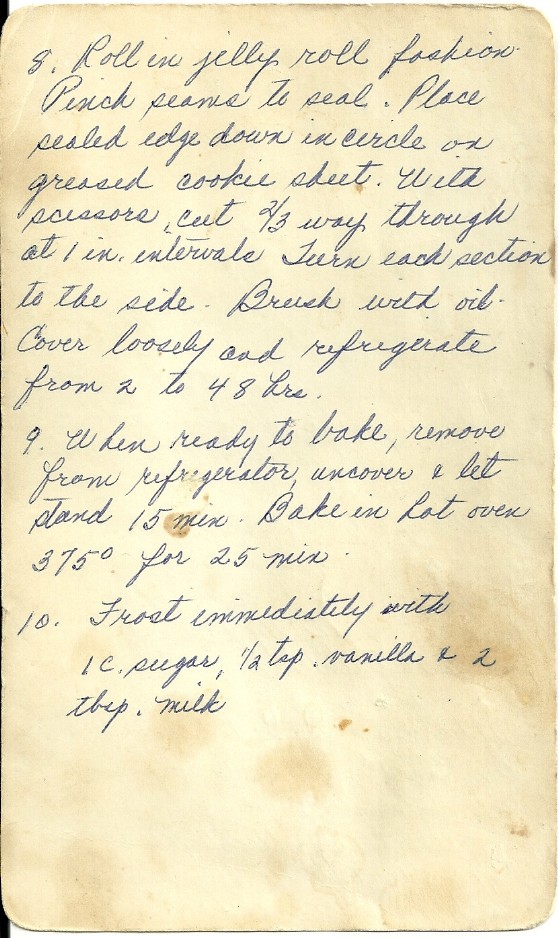 8. Roll in jelly roll fashion.
Pinch seams to seal. Place
sealed edge down in circle on
greased cookie sheet. With
scissors, cut 2/3 way through
at 1 in. intervals Turn each section
to the side. Brush with oil.
Cover loosely and refrigerate
from 2 to 48 hrs.
9. When ready to bake, remove
from refrigerator, uncover & let
stand 15 min. Bake in hot oven
375° for 25 min.
10. Frost immediately with
1 c. sugar, 1/2 tsp. vanilla & 2
tbsp. milk